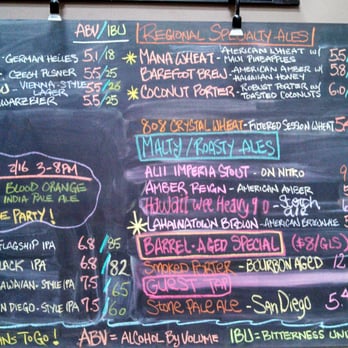 ABV/IBU
REGIONAL SPECIALTY ALES
- GERMAN HELLES 5.1/18
- CZECH PILSNER 5.5/25
- VIENNA-STYLE LAGER 5.5/26
SCHWARZBIER 5.5/25
MANA WHEAT - AMERICAN WHEAT W/ MAUI PINEAPPLES 5.5
BAREFOOT BREW - AMERICAN AMBER W/ HAWAIIAN HONEY 5.8
COCONUT PORTER - ROBUST PORTER W/ TOASTED COCONUTS 6.0
808 CRYSTAL WHEAT - FILTERED SESSION WHEAT
MALTY/ROASTY ALES
ALII IMPERIAL STOUT - ON NITRO
AMBER REIGN - AMERICAN AMBER
HAWAII WEE HEAVY 90 - SCOTCH ALE
LAHAINATOWN BROWN - AMERICAN BROWN ALE
BARREL-AGED SPECIAL ($8/GLS)
SMOKED PORTER - BOURBON AGED 12
GUEST TAP
STONE PALE ALE - SAN DIEGO 5.4
2/16 3-8PM
BLOOD ORANGE
INDIA PALE ALE
PARTY!
FLAGSHIP IPA 6.8/85
BLACK IPA 6.8/82
HAWAIIAN-STYLE IPA 7.5/65
SAN DIEGO-STYLE IPA 7.5/60
TO GO!
ABV = ALCOHOL BY VOLUME
IBU = BITTERNESS UN